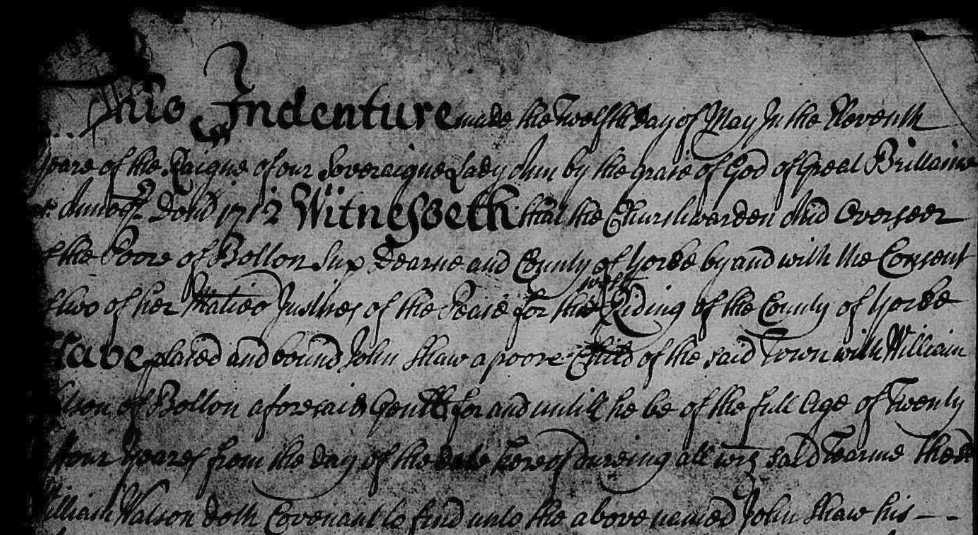 This Indenture made the Twelfth day of May In the Eleventh
yeare of the Raigne of our Sovereigne Lady Ann by the grace of God of Great Brittaine
Domi 1712 Witnesseth that the Churchwarden And Overseer
of the Poore of Bolton Sup Dearne and County of Yorke by and with the Consent
of two of her Maties Justices of the Peace for the west Riding of the County of Yorke
Have placed and bound John Shaw a poore Child of the said Town with William
of Bolton aforesaid Gentt for and untill he be of the full Age of Twenty
four Yeares from the day of the date hereof dureing all said Tearme the sd
William Watson doth Covenant to find unto the above named John Shaw his - -